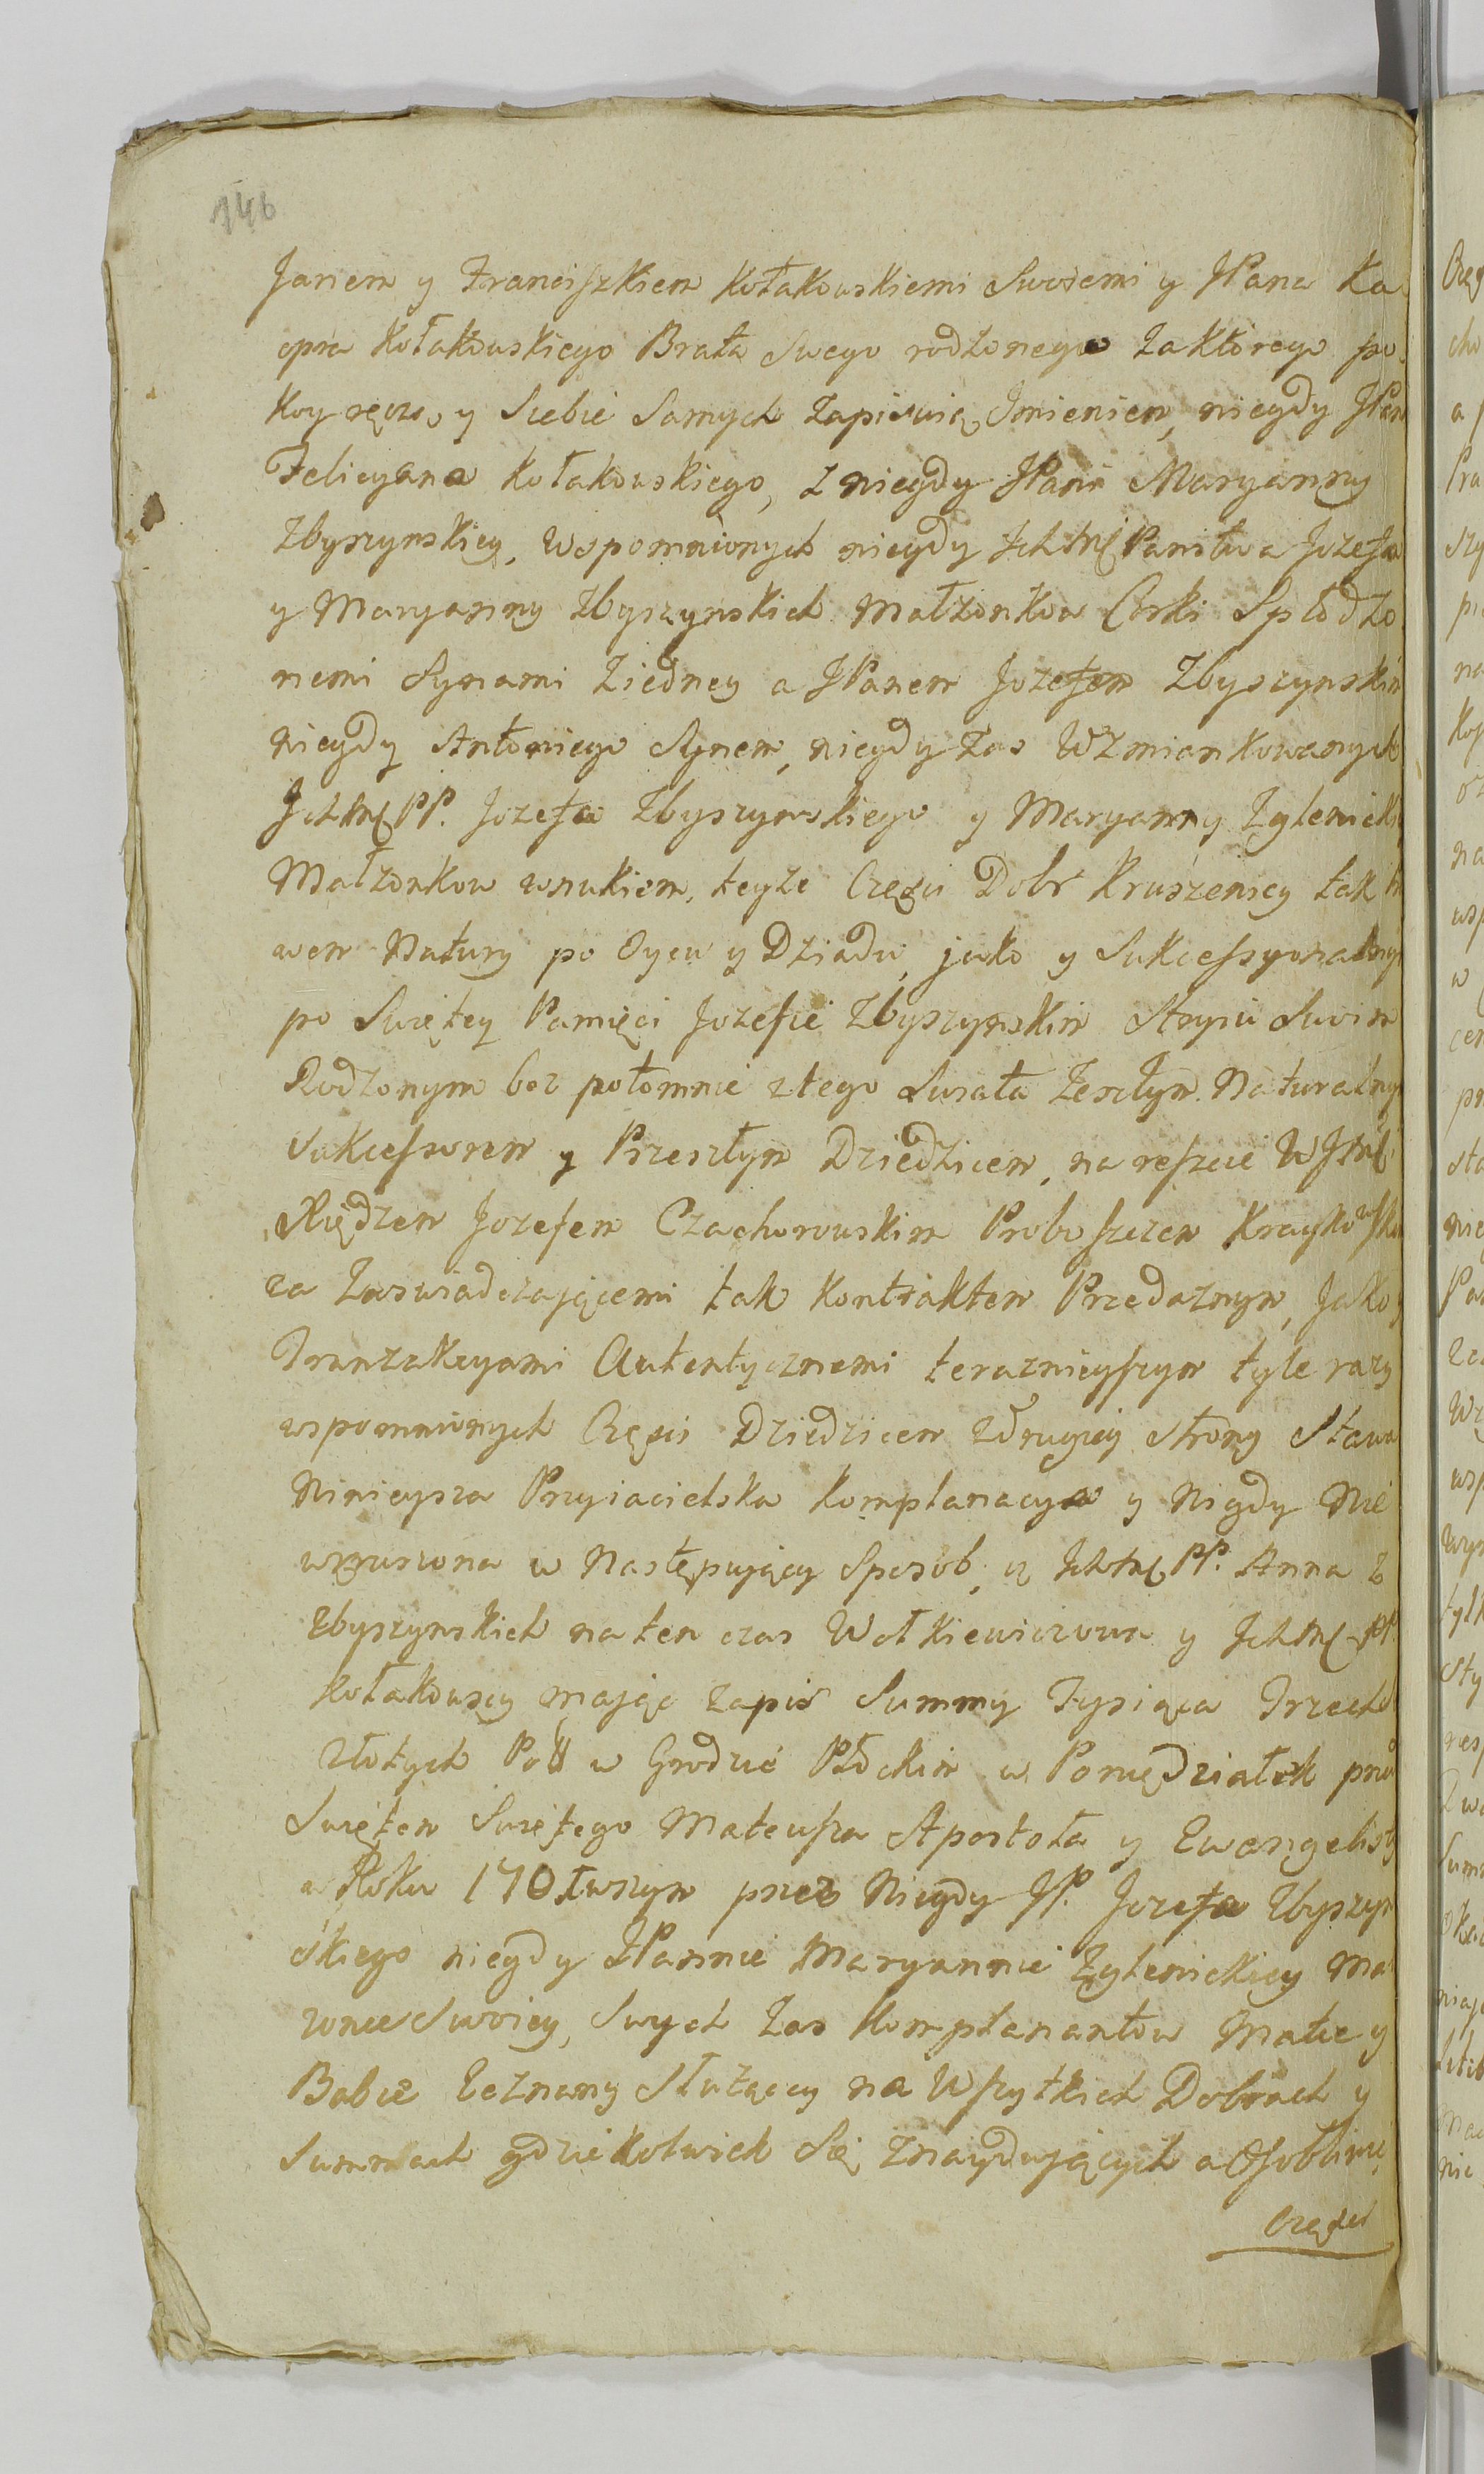 146
Janem y Franciszkiem Kołakowskiemi Swoiemi y JPana Ka
cpra Kołakowskiego Brata Swego rodzonego za ktorego po
koy ręczo, y Siebie Samych zapisuią Imieniem, niegdy JPan
Felicyana Kołakowskiego, z niegdy JPani Maryanny
Zbyszynskiey, wspomnionych niegdy Ichmć Państwa Jozefa
y Maryanny Zbyszynskich Małzonkow Corki Spłodzo
nemi Synami ziedney a JPanem Jozefem Zbyszynskim
niegdy Antoniego Synem, niegdy zas Wzmiankowanych
Ichmć PP. Jozefa Zbyszynskiego y Maryanny Zglenicki
Małzonkow wnukiem, teyze Częsci Dobr Kruszenicy tak
wem Natury po Oycu y Dziadu, jako y Sukcessyonalnym
po Swiętey Pamięci Jozefie Zbyszynskim Stryiu Swoim
Rodzonym bez potomnie z tego Swiata Zeszłym Naturalnym
Sukcessorem y Przeszłym Dziedzicem, na reszcie WJmć
Xiędzem Jozefem Czachorowskim Proboszczem
za Zaswiadczaiącemi tak Kontraktem Przedaznym, Jako y
Tranzakcyami Autentycznemi teraznieyszym tyle razy
wspomnionych Częsci Dziedzicem zdrugiey strony Stawa
Ninieysza Przyiacielska komplanacya y Nigdy Nie
wzruszona w Następuiący Sposob, iz Ichmć PP. Anna z
Zbyszynskich na ten czas Wołkiewiczowa y Ichmć PP.
Kołakowscy maiąc zapis Summy Tysiąca Trzech
Złotych Poll w Grodzie Płockim w Poniedziałek przed
Swiętem Swiętego Mateusza Apostoła y Ewangelisty
w Roku 1701wszym przez Niegdy JP. Jozefa Zbyszyn
skiego niegdy JPannie Maryannie Zglenickiey Mał
zonce Swoiey, Swych zas Komplanantow Matce y
Babce Zeznany Słuzący na Wszytkich Dobrach y
Summach gdziekolwiek Się Znayduiących a Osobliwie
Częsci